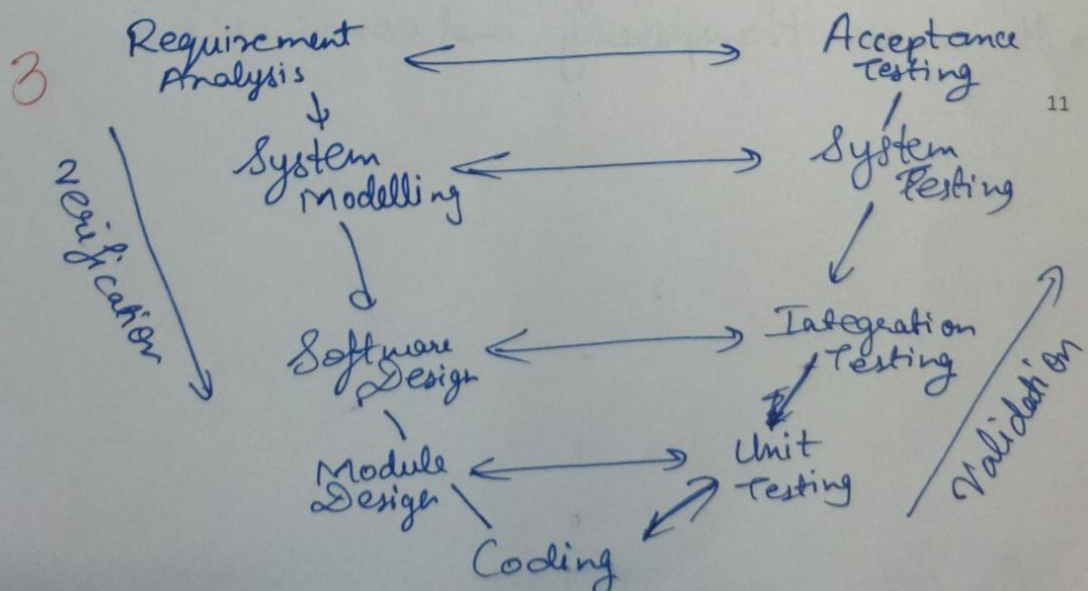 3
Requirement
Analysis
Acceptance
Testing
11
System
Modelling
System
Testing
verification
Software
Design
Integration
Testing
Validation
Module
Design
Unit
Testing
Coding